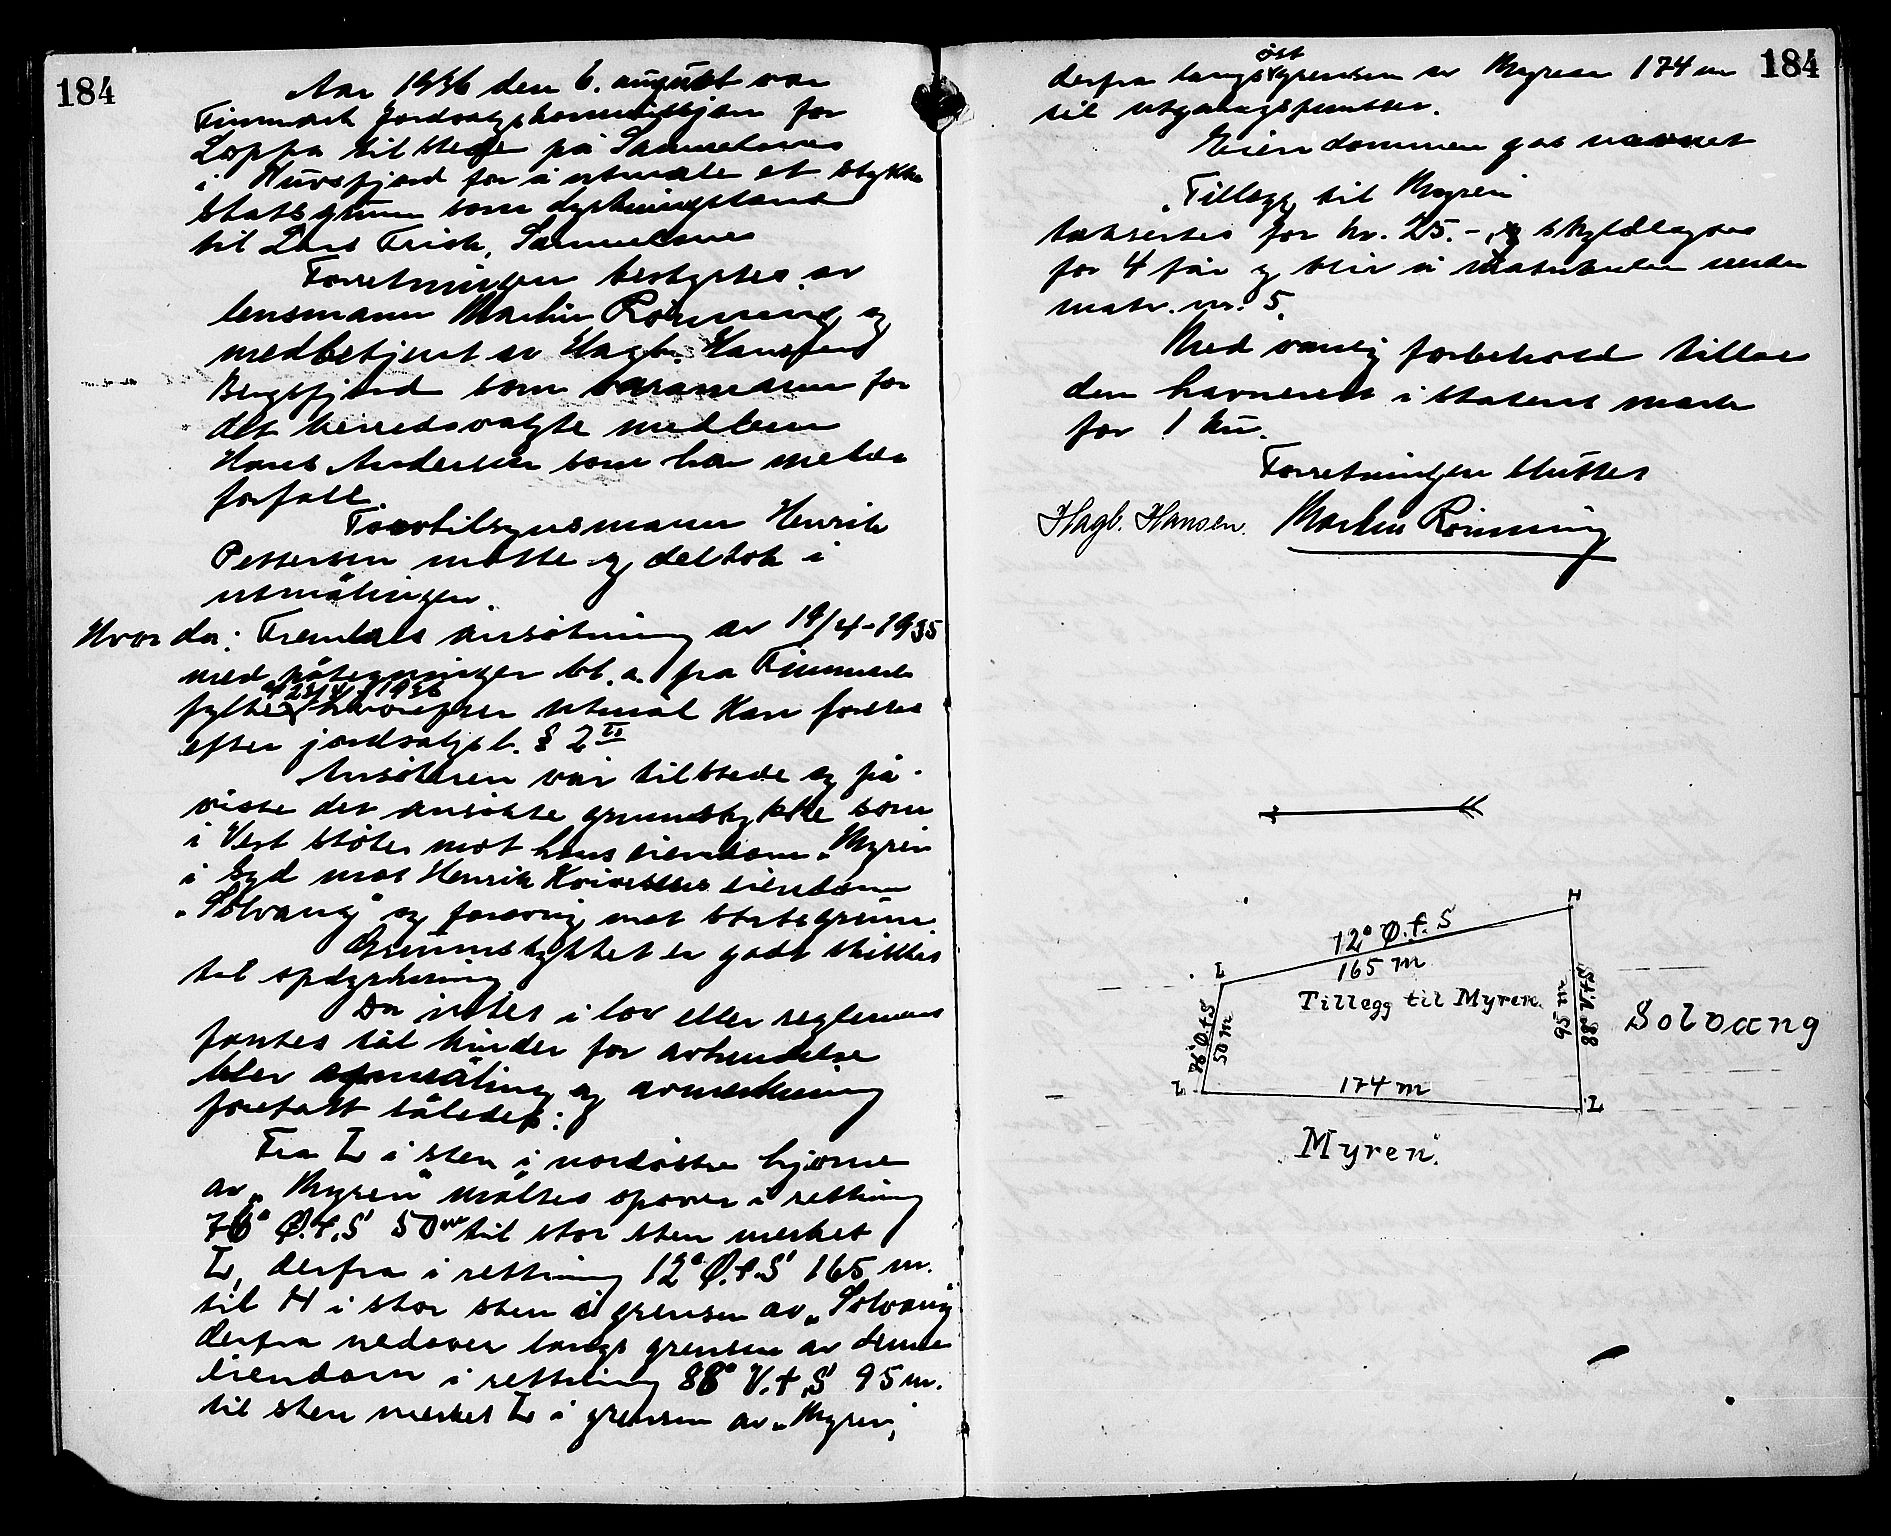 184
Aar 1936 den 6. august var
Finmark Jordsalgskommisjon for
Loppa tilstede på Samuelsnes
i Nuvsfjord for å utmåle et stykke
statsgrunn som dyrkningsland
til Lars Frick, Samuelsnes
Forretningen bestyrtes av
lensmann Martin Rönning og
medbetjent av Hagb. Hansen
Bergsfjord som varamann for
det herredsvalgte medlem
Hans Andersen som har meldt
forfall.
Henrik
Pettersen møtte og deltok i
utmålingen.
Hvorda: Fremlaes ansökning av 19/4-1935
med påtegninger bl. a. fra Finmark
av 23/4 1936
fylke hvorefter utmål kan foretas
efter jordsalgsl. § 2
Ansökeren var tilstede og på-
viste det ansökte grunnstykke som
i Vest stöter mot hans eiendom „Myren"
i Syd mot Henrik eiendom
„Solvang" og forövrig mot statsgrunn.
Grunnstykket er godt skikket
til opdyrkning
Da intet i lov eller reglement
fantes til hinder for avhendelse
blev opmåling og avmerkning
foretatt således:
Fra L i sten i nordöstre hjörne
av „Myren" måltes opover i retning
76° Ø.t.S 50 m til stor sten merket
L, derfra i retning 12° Ø.t.S 165 m.
til H i stor sten i grensen av „Solvang"
derfra nedover langs grensen av denne
eiendom i retning 88° V.t.S 95 m.
til sten merket L i grensen av „Myren",
184
öst
derfra langs grensen av Myren 174 m
til utgangspunktet.
Eiendommen gas navnet
„Tillegg til Myren"
taksertes for kr. 25.-, og skyldlagtes
for 4 før og blir å matrikulere under
matr. nr. 5.
Med vanlig forbehold tillaes
den havnerett i statens mark
for 1 ku.
Forretningen sluttet
Hagb. Hansen. Martin Rönning
H
12° Ø.t.S
165 m
L
Tillegg til Myren.
76° Ø.t.S
50 m
95 m
88° V.t.S
Solvang
L
174 m
L
„Myren"